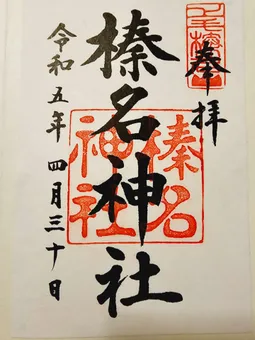 奉拝
榛名神社
榛名神社
令和五年 四月三十日